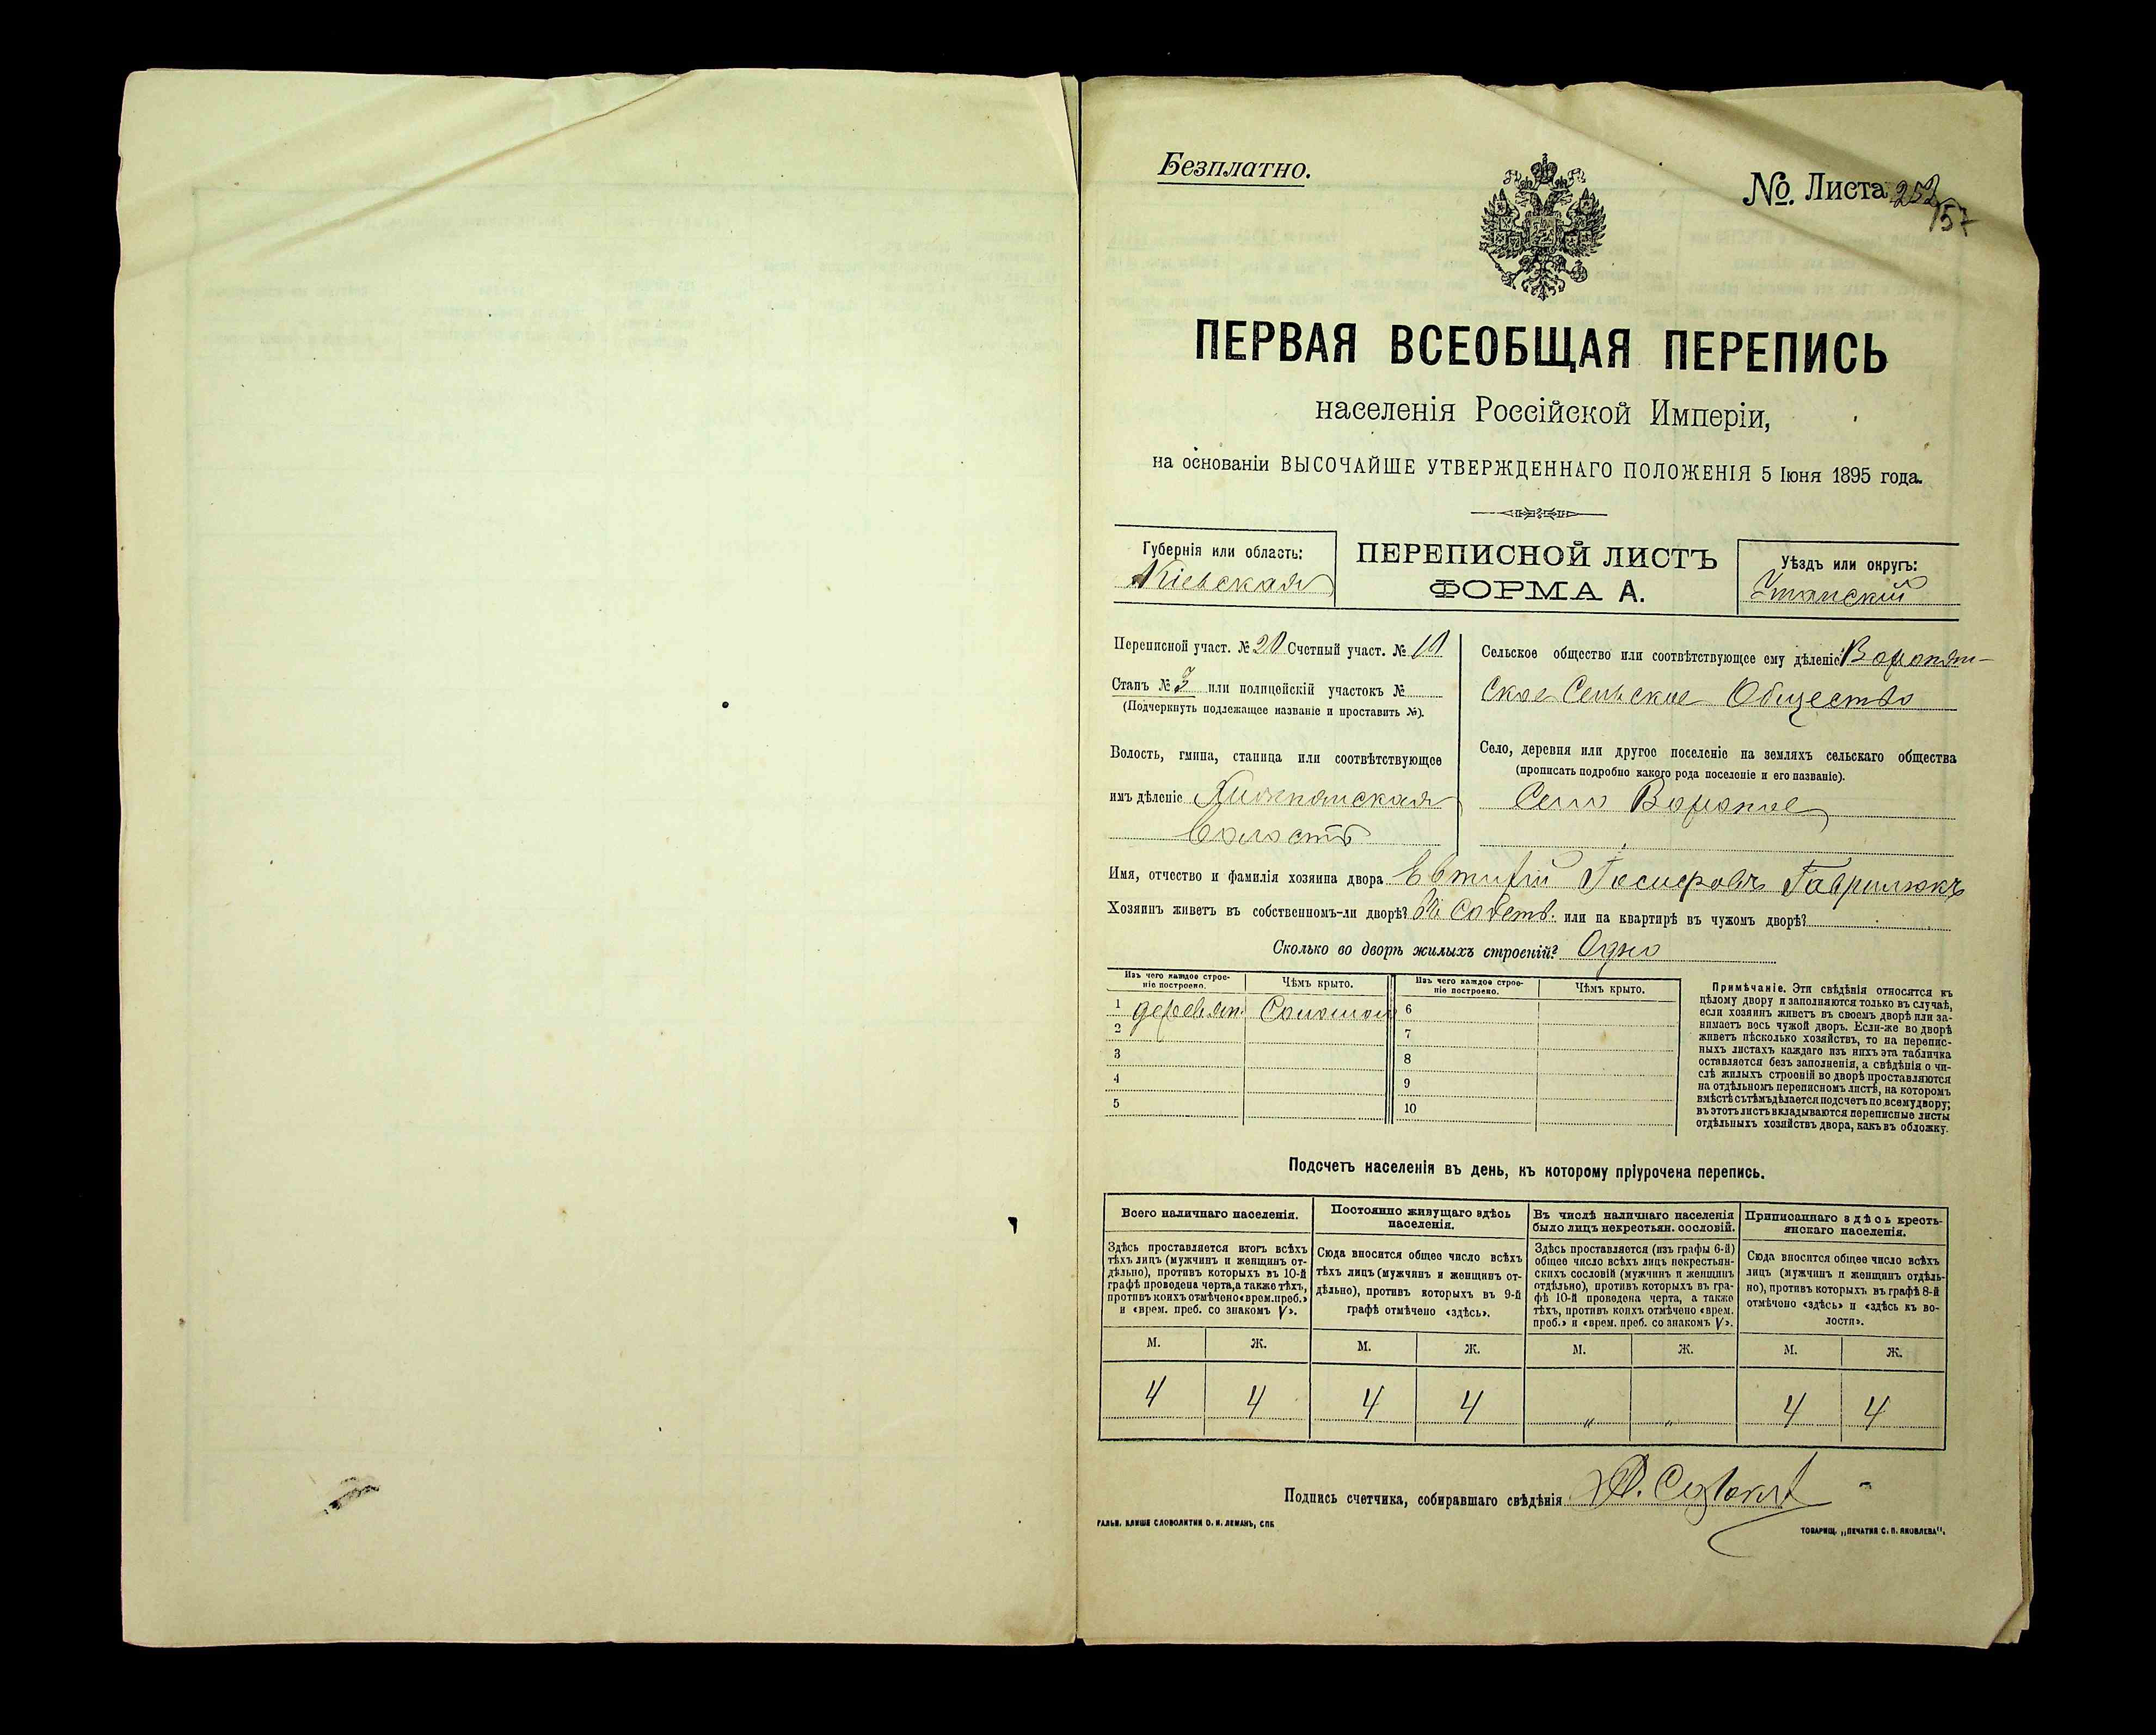 Безплатно.
№ Листа 252
157
ПЕРВАЯ ВСЕОБЩАЯ ПЕРЕПИСЬ
населенія Россійской Имперіи,
на основаніи ВЫСОЧАЙШЕ УТВЕРЖДЕННАГО ПОЛОЖЕНІЯ 5 Іюня 1895 года.
Губернія или область:
Кіевская
ПЕРЕПИСНОЙ ЛИСТЪ
ФОРМА А.
Уѣздъ или округъ:
Уманскій
Переписной участ. № 20 Счетный участ. № 10
Станъ № 3 или полицейскій участокъ №
(Подчеркнуть подлежащее названіе и проставить №).
Волость, гмина, станица или соотвѣтствующее
имъ дѣленіе
волость
Сельское общество или соотвѣтствующее ему дѣленіе: Воронян-
ское Сельское Общество
Село, деревня или другое поселеніе на земляхъ сельскаго общества
(прописать подробно какого рода поселеніе и его названіе).
Село Вороное
Имя, отчество и фамилія хозяина двора Евтифій Іосифовъ Гаврилюкъ
Хозяинъ живетъ въ собственномъ-ли дворѣ? Въ Собств. или на квартирѣ въ чужомъ дворѣ?
Сколько во дворѣ жилыхъ строеній? Одно
Изъ чего каждое строе-
ніе построено.
Чѣмъ крыто.
Изъ чего каждое строе-
ніе построено.
Чѣмъ крыто.
1 деревян. Соломой 6
2 7
3 8
4 9
5 10
Примѣчаніе. Эти свѣдѣнія относятся къ
цѣлому двору и заполняются только въ случаѣ,
если хозяинъ живетъ въ своемъ дворѣ или за-
нимаетъ весь чужой дворъ. Если-же во дворѣ
живетъ нѣсколько хозяйствъ, то на перепис-
ныхъ листахъ каждаго изъ нихъ эта табличка
оставляется безъ заполненія, а свѣдѣнія о чи-
слѣ жилыхъ строеній во дворѣ проставляются
на отдѣльномъ переписномъ листѣ, на которомъ
вмѣстѣ съ тѣмъ дѣлается подсчетъ по всему двору;
въ этотъ листъ вкладываются переписные листы
отдѣльныхъ хозяйствъ двора, какъ въ обложку.
Подсчетъ населенія въ день, къ которому пріурочена перепись.
Всего наличнаго населенія.
Здѣсь проставляется итогъ всѣхъ
тѣхъ лицъ (мужчинъ и женщинъ от-
дѣльно), противъ которыхъ въ 10-й
графѣ проведена черта, а также тѣхъ,
противъ коихъ отмѣчено «врем. преб.»
и «врем. преб. со знакомъ V».
Постоянно живущаго здѣсь
населенія.
Сюда вносится общее число всѣхъ
тѣхъ лицъ (мужчинъ и женщинъ от-
дѣльно), противъ которыхъ въ 9-й
графѣ отмѣчено «здѣсь».
Въ числѣ наличнаго населенія
было лицъ некрестьян. сословій.
Здѣсь проставляется (изъ графы 6-й)
общее число всѣхъ лицъ некрестьян-
скихъ сословій (мужчинъ и женщинъ
отдѣльно), противъ которыхъ въ гра-
фѣ 10-й проведена черта, а также
тѣхъ, противъ коихъ отмѣчено «врем.
преб.» и «врем. преб. со знакомъ V».
Приписаннаго здѣсь кресть-
янскаго населенія.
Сюда вносится общее число всѣхъ
лицъ (мужчинъ и женщинъ отдѣль-
но), противъ которыхъ въ графѣ 8-й
отмѣчено «здѣсь» и «здѣсь въ во-
лости».
М. Ж. М. Ж. М. Ж. М. Ж.
4 4 4 4 " " 4 4
Подпись счетчика, собиравшаго свѣдѣнія
ГАЛЬВ. КЛИШЕ СЛОВОЛИТНИ О. И. ЛЕМАНЪ, СПБ
ТОВАРИЩ. „ПЕЧАТНЯ С. П. ЯКОВЛЕВА".